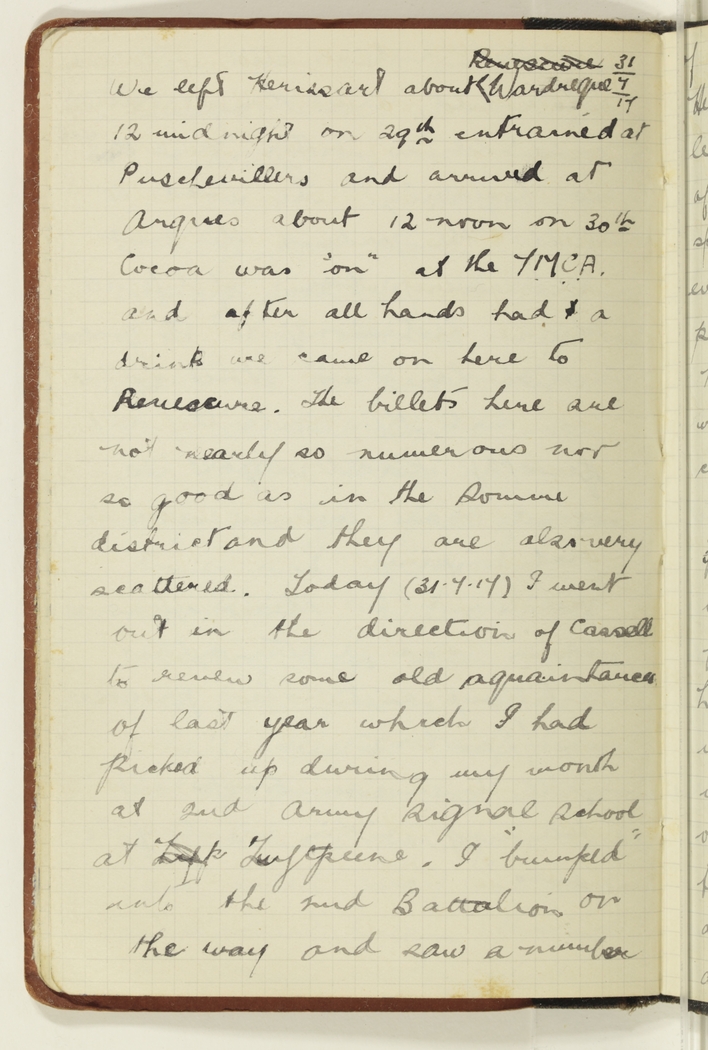 Renescure 31/7/17
We left Herissart about Wardreques
12 midnight on 29th entrained at
Puschevillers and arrived at
Arques about 12 noon on 30th
Cocoa was "on" at the YMCA.
and after all hands had a
drink we came on here to
Renescure. The billets here are
not nearly so numerous nor
so good as in the Somme
district and they are also very
scattered. Today (31.7.17) I went
out in the direction of Cassell
to renew some old aquaintances
of last year which I had
picked up during my month
at 2nd Army signal school
at Zuytpeene. I "bumped"
into the 2nd Battalion on
the way and saw a number